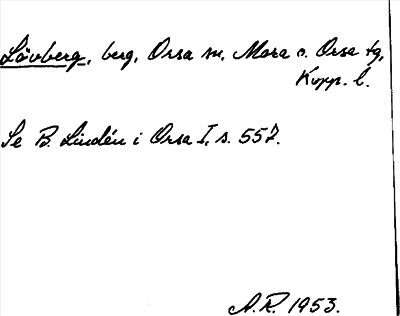 Lövberg, berg, Orsa sn, Mora o. Orsa tg,
Kopp. l.
Se B. Lindén i Orsa I, s. 557.
A.R. 1953.